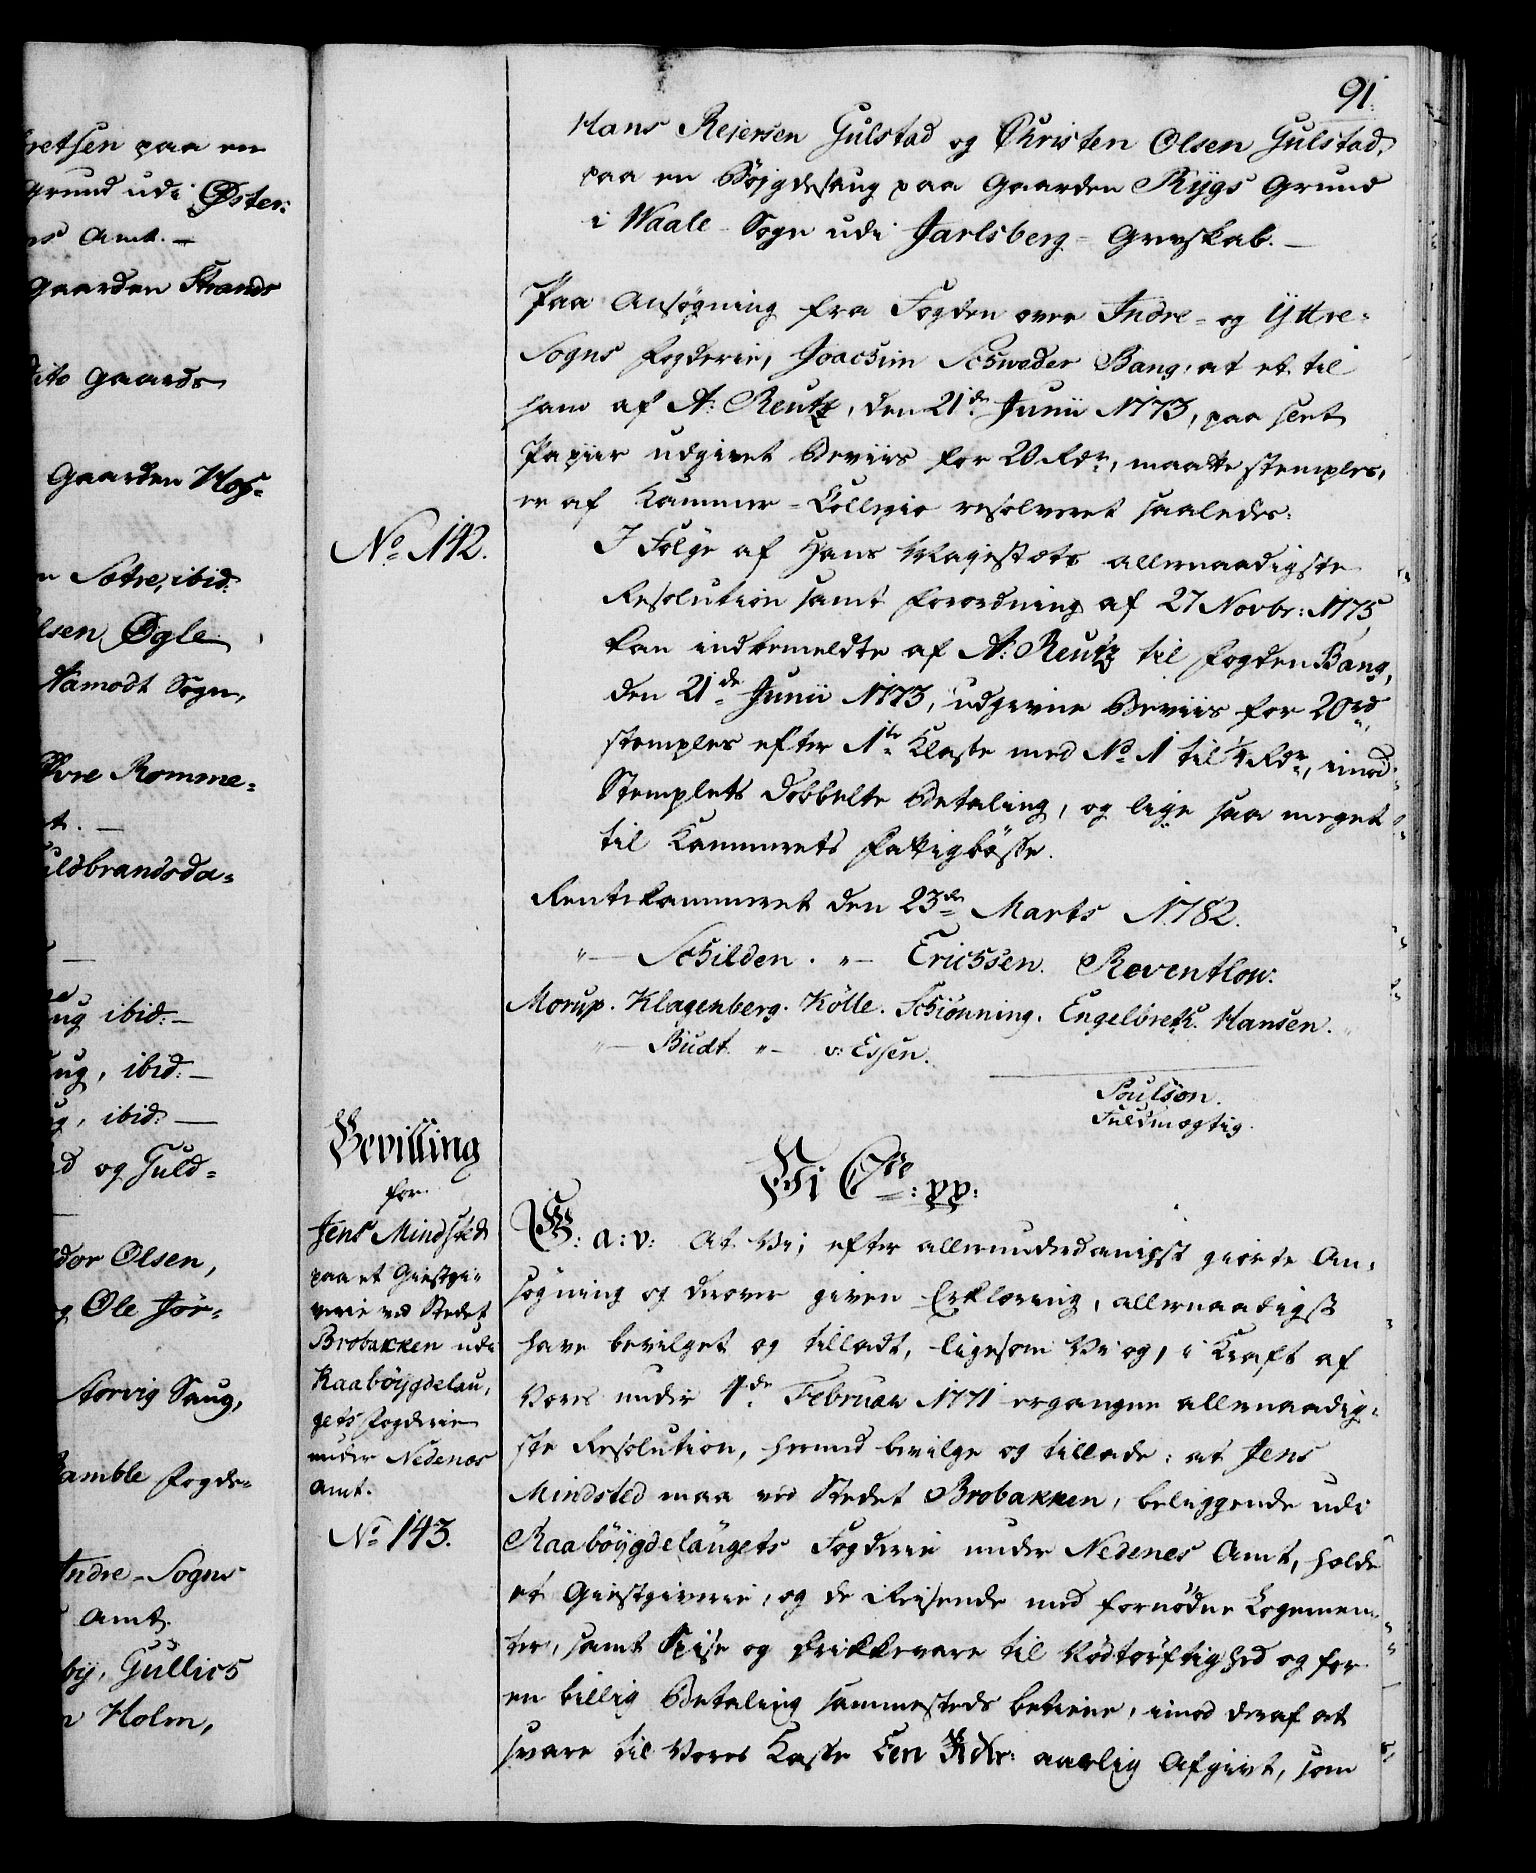 retsen paa en
Grund udi Øster:
Amt. —
Gaarden Strands
dito Gaards
Gaarden Hog-
Sætre, ibid:
lsen Øgle
Aamodt Sogn,
Øvre Romme-
uldbrandsda-
ug ibid: —
ug, ibid: —
g, ibid: —
og Guld-
dor Olsen,
og Ole Jör-
Storvig Saug,
Bamble Fogde-
Indre-Sogns
Amt.
by, Gullich
Holm,
91.
Hans Rejersen Gulstad og Christen Olsen Gulstad,
paa en Böjgdesaug paa Gaarden Rygs Grund
i Waale Sogn udi Jarlsberg Grevskab. —
Paa Ansögning fra Fogden over Indre- og Yttre-
Sogns Fogderie, Joachim Schweder Bang, at et til
ham af A: Reutz, den 21de Junii 1773, paa slet
Papiir udgivet Beviis for 20 Rdr, maatte stemples,
er af Kammer-Collegio resolveret saaledes:
No 142.
I Fölge af Hans Majestæts allernaadigste
Resolution samt Forordning af 27 Novbr: 1775,
kan indbemeldte af A: Reutz til Fogden Bang,
den 21de Junii 1773, udgivne Beviis for 20 rd
stemples efter 1te Klasse med No 1 til 1/4 Rdr, imod
Stemplets dobbelte Betaling, og lige saa meget
til Kammerets Fattigbösse.
Rentekammeret den 23de Marts 1782.
"— Schilden. "— Erichsen. Reventlow:
Morup. Klagenberg. Kölle. Schiönning. Engelbreth. Hansen.
"— Büdt. "— v: Essen.
Poulson.
Fuldmægtig.
Bevilling
for
Jens Mindsted
paa et Giestgi-
verie ved Stedet
Brobakken udi
Raaböygdelau-
gets Fogderie
under Nedenes
Amt.
No 143.
Vi C 7de: pp:
G: a: v: At Vi, efter allerunderdanigst giorte An-
sögning og derover given Erklæring, allernaadigst
have bevilget og tilladt, ligesom Vi og, i Kraft af
Vores under 4de Februar 1771 ergangne allernaadig-
ste Resolution, hermed bevilge og tillade: at Jens
Mindsted maa ved Stedet Brobakken, beliggende udi
Raaböygdelaugets Fogderie under Nedenes Amt, holde
et Giestgiverie, og de Reisende med fornödne Logemen-
ter, samt Spise og Drikkevare til Nödtörftighed og for
en billig Betaling sammesteds betiene, imod deraf at
svare til Vores Kasse Een Rdr: aarlig Afgivt, som